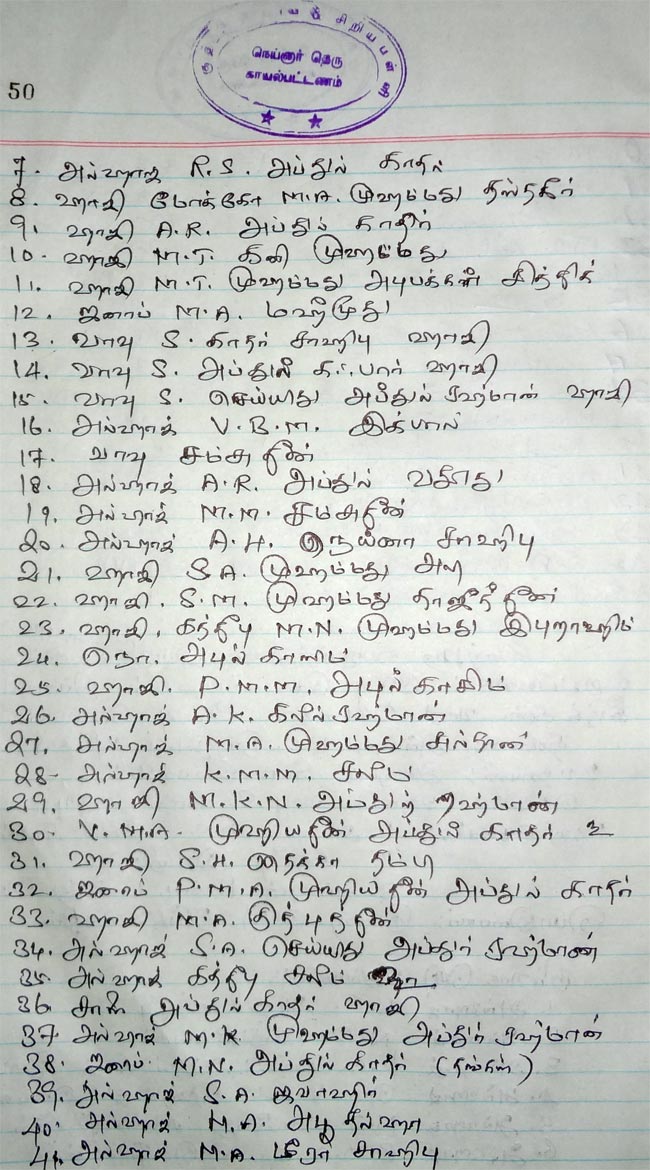 சிறிய
நெய்னார் தெரு
காயல்பட்டணம்
50
7. அல்ஹாஜ் R.S. அப்துல் காதர்
8. ஹாஜி மோக்கோ M.A. முஹம்மது தஸ்தகீர்
9. ஹாஜி A.R. அப்துல் காதிர்
10. ஹாஜி M.T. கனி முஹம்மது
11. ஹாஜி M.T. முஹம்மது அபுபக்கர் சித்தீக்
12. ஜனாப் M.A. மஹ்மூது
13. வாவு S. காதர் சாஹிபு ஹாஜி
14. வாவு S. அப்துல் கஃபார் ஹாஜி
15. வாவு S. செய்யிது அப்துல் ரஹ்மான் ஹாஜி
16. அல்ஹாஜ் V.B.M. இக்பால்
17. வாவு சம்சுதீன்
18. அல்ஹாஜ் A.R. அப்துல் வதூது
19. அல்ஹாஜ் M.M. சம்சுதீன்
20. அல்ஹாஜ் A.H. நெய்னா சாஹிபு
21. ஹாஜி S.A. முஹம்மது அலி
22. ஹாஜி. S.M. முஹம்மது தாஜுத்தீன்
23. ஹாஜி. கத்தீபு M.N. முஹம்மது இபுறாஹிம்
24. நெ. அபுல் காஸம்
25. ஹாஜி. P.M.M. அபுல் காசிம்
26. அல்ஹாஜ் A.K. கலீல் ரஹ்மான்
27. அல்ஹாஜ் M.A. முஹம்மது சுல்தான்
28. அல்ஹாஜ் K.M.M. சலீம்
29. ஹாஜி M.K.N. அப்துர் ரஹ்மான்
30. V.M.A. முஹியதீன் அப்துல் காதர்
31. ஹாஜி S.H. தைக்கா தம்பி
32. ஜனாப் P.M.A. முஹியதீன் அப்துல் காதர்
33. ஹாஜி M.A. குத்புதீன்
34. அல்ஹாஜ் S.A. செய்யிது அப்துர் ரஹ்மான்
35. அல்ஹாஜ் கத்தீபு சலீம்
36. சாளை அப்துல் காதர் ஹாஜி
37. அல்ஹாஜ் M.K. முஹம்மது அப்துர் ரஹ்மான்
38. ஜனாப் M.N. அப்துல் காதர் (தங்கள்)
39. அல்ஹாஜ் S.A. ஜவாஹிர்
40. அல்ஹாஜ் M.A. அபூ தல்ஹா
41. அல்ஹாஜ் M.A. மீரா சாஹிபு